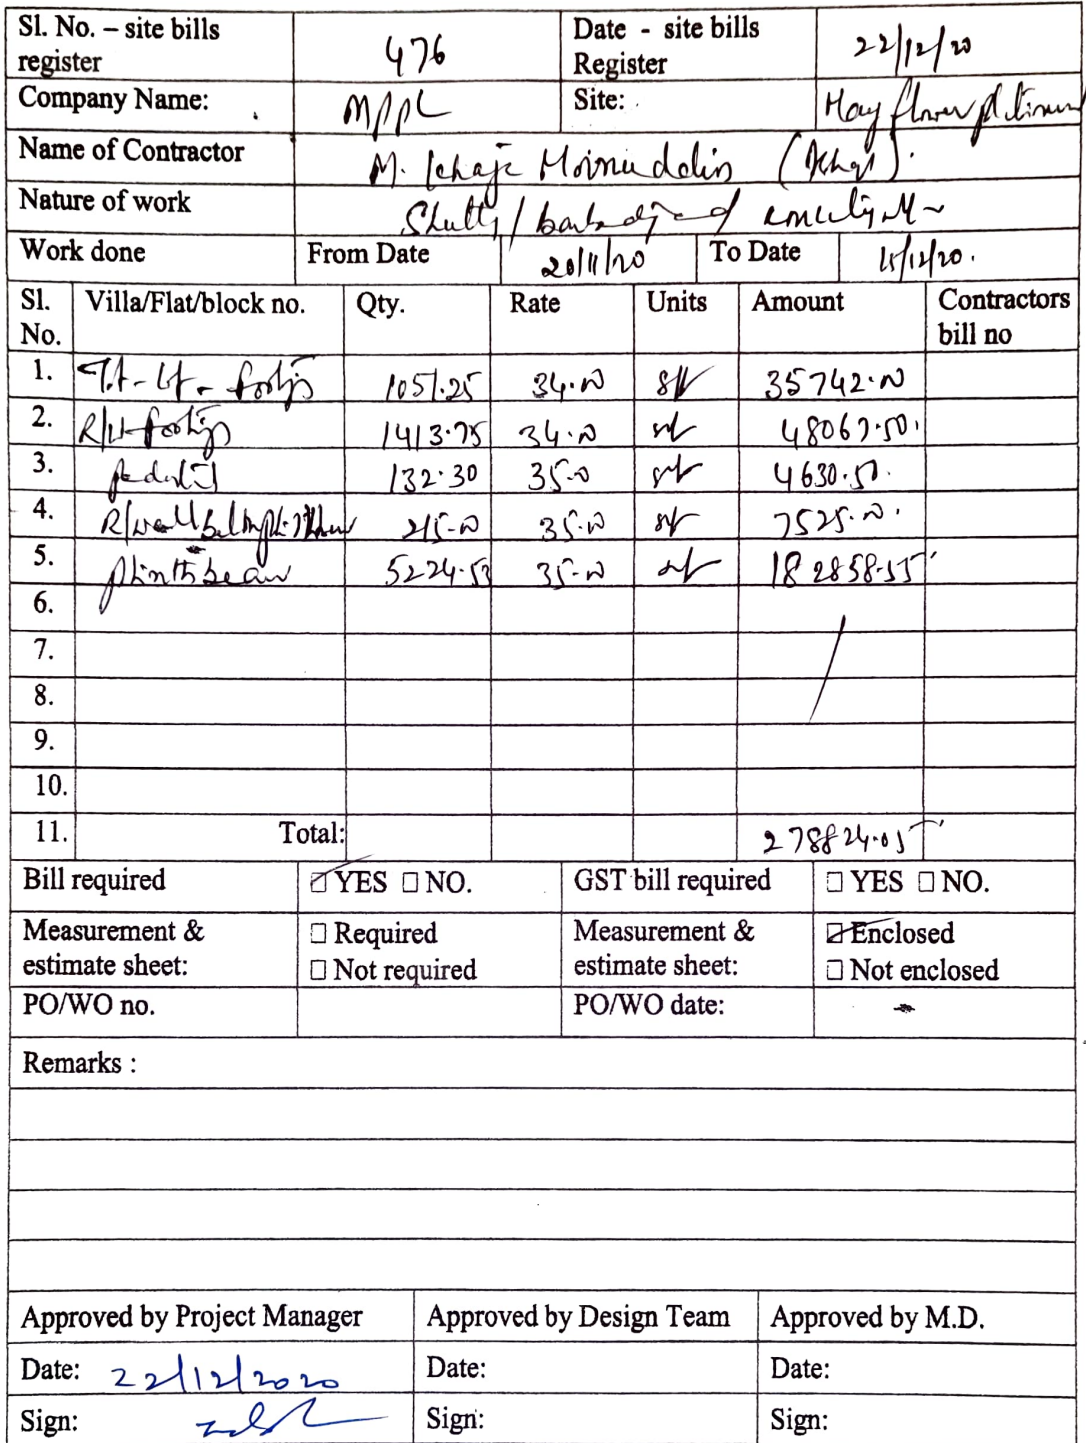 Sl. No. – site bills register 476 Date - site bills Register 22/12/20
Company Name: MPPL Site: May flower platinum
Name of Contractor M. Khaja Moinuddin
Nature of work
Work done From Date 20/11/20 To Date 15/12/20.
Sl. No. Villa/Flat/block no. Qty. Rate Units Amount Contractors bill no
1. 1051.25 34.00 sft 35742.00
2. R/W footings 1413.75 34.00 sft 48067.50.
3. 132.30 35.0 sft 4630.50.
4. R/wall 215.00 35.00 sft 7525.00.
5. plinth beam 5224.53 35.00 sft 182858.55
6.
7.
8.
9.
10.
11. Total: 278824.05
Bill required YES NO. GST bill required YES NO.
Measurement & estimate sheet: Required Not required Measurement & estimate sheet: Enclosed Not enclosed
PO/WO no. PO/WO date:
Remarks :
Approved by Project Manager Approved by Design Team Approved by M.D.
Date: 22/12/2020 Date: Date:
Sign: Sign: Sign: